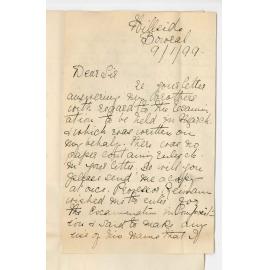 Hillside
Bowral
9/1/99.
Dear Sir
Re your letter
answering my brothers
with regard to the Examin
ation to be held in March
& which was written on
my behalf. There was no
paper containing
in your letter. So will you
please send me a copy
at once. Professor
wished me to enter for
the Examination in Composit
ion & said to make any
use of his name that I